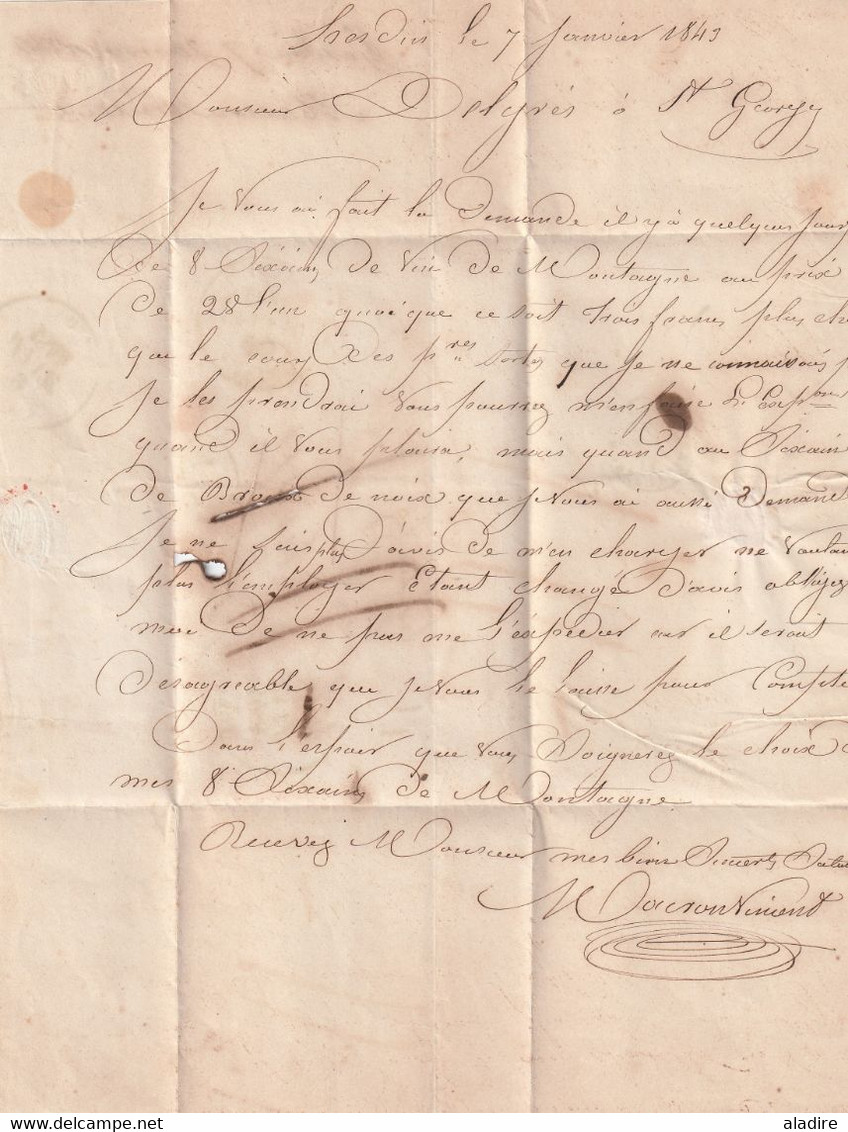 hesdin le 7 Janvier 1843
Monsieur Delgrés à St George
Je Vous ai fait la Demande il y à quelques jours
De 8 Sixains de Vin de Montagne au prix
de 28 l'un quoique ce soit trois francs plus che
que le cours Des pres sortes que je ne connaisais p
Je les prendrai Vous pourrez m'en faire L' Expon
quand il Vous plaira, mais quand au Sixain
de de noix que je Vous ai aussi Demandé
Je ne suis plus D'avis de m'en charger ne Voulan
plus l'employer Etant changé D'avis obligez
moi De ne pas me l'éxpedier car il serait
Désagreable que je Vous le laisse pour Compte
Dans l'espoir que Vous Soignerez le choix d
mes 8 Sixains de Montagne
Recevez Monsieur mes bien Sincers Salu
Macron Vincent
aladire